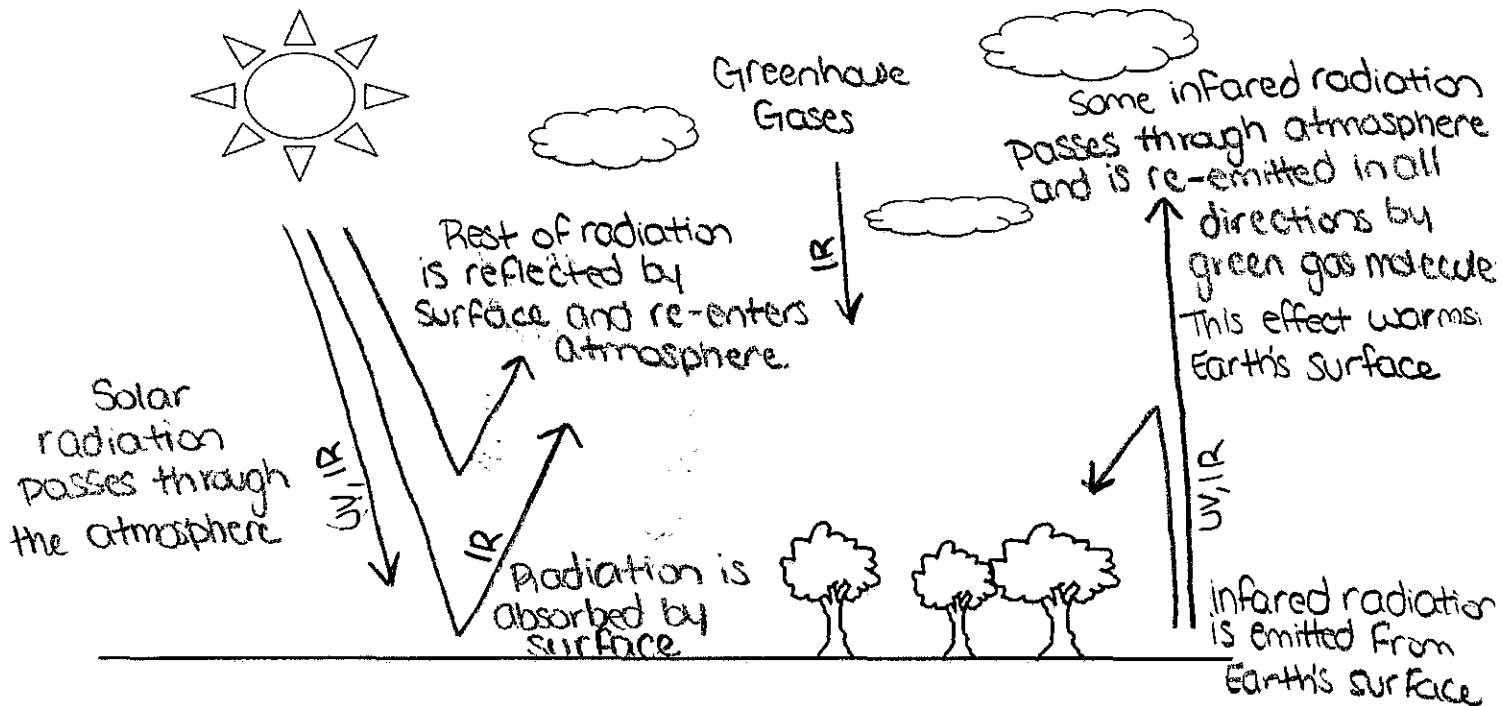 Greenhouse
Gases
IR
Some infared radiation
passes through atmosphere
and is re-emitted in all
directions by
green gas molecule
This effect warms
Earth's surface
Rest of radiation
is reflected by
surface and re-enters
atmosphere.
Solar
radiation
passes through
the atmosphere
UV, IR
IR
Radiation is
absorbed by
surface
UV, IR
infared radiation
is emitted from
Earth's surface